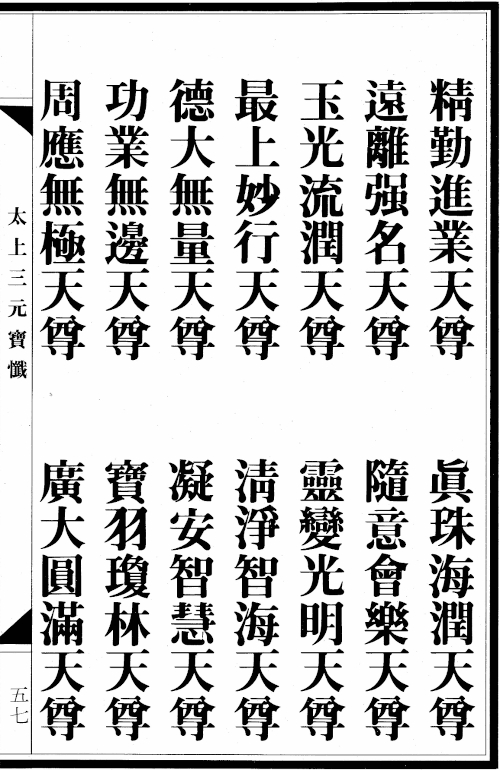 精勤進業天尊　眞珠海潤天尊
遠離强名天尊　隨意會樂天尊
玉光流潤天尊　靈變光明天尊
最上妙行天尊　淸淨智海天尊
德大無量天尊　凝安智慧天尊
功業無邊天尊　寶羽瓊林天尊
周應無極天尊　廣大圓滿天尊
太上三元寶懺
五七